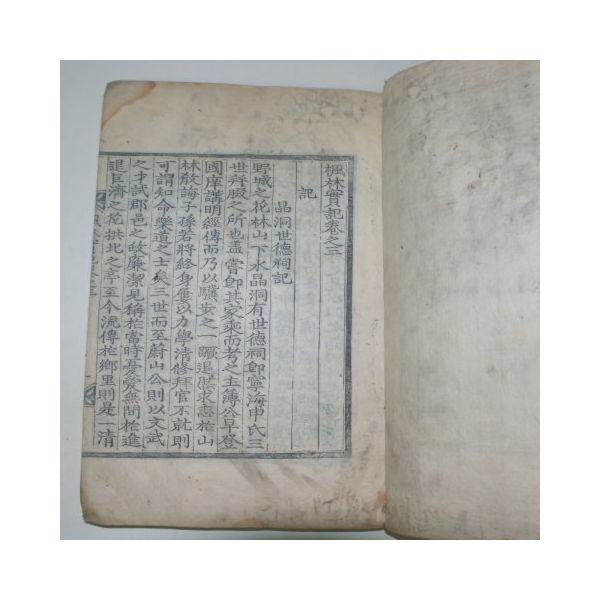 楓林實記卷之三
記
晶洞世德祠記
野城之花林山下水晶洞有世德祠卽寧海申氏三
世齊腏之所也盖嘗卽其家乘而考之主簿公早登
國庠講明經傳而乃以驥步之一蹶退憩求志於山
林敎誨子孫若將終身屢以力學淸修拜官不就則
可謂知命樂道之士矣三世而至蔚山公則以文武
之才試郡邑之政廉潔見稱於當時憂愛無間於進
退巨濟之花拱北之亭至今流傳於鄕里則是一淸